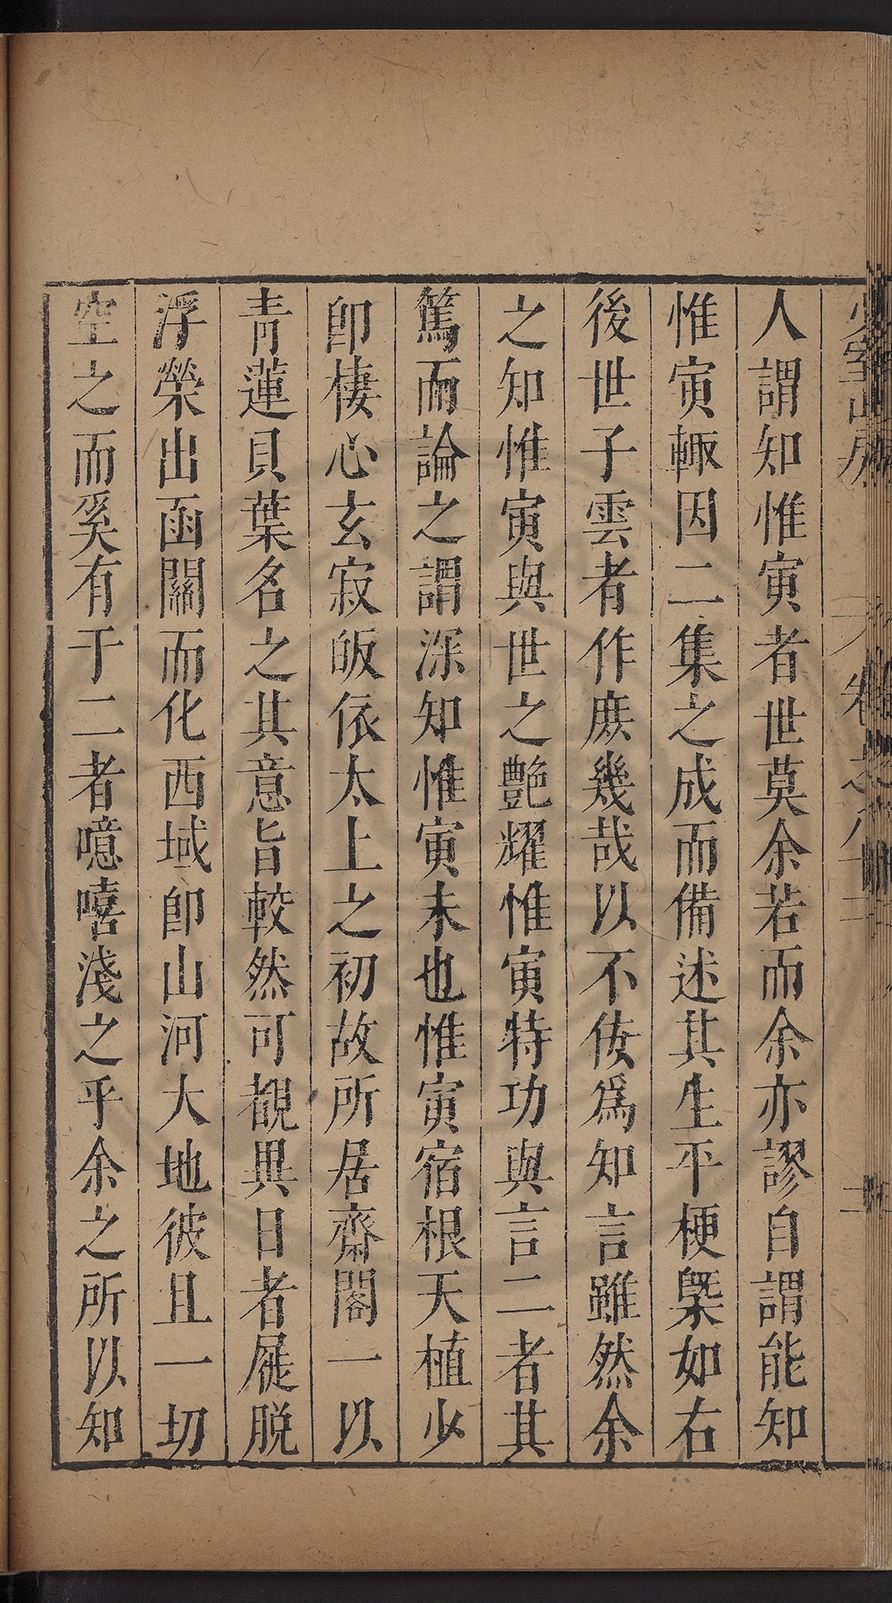 人謂知惟寅者世莫余若而余亦謬自謂能知
惟寅輙因二集之成而備述其生平梗槩如右
後世子雲者作庶幾哉以不佞爲知言雖然余
之知惟寅與世之艷耀惟寅特功與言二者其
篤而論之謂深知惟寅未也惟寅宿根天植少
卽棲心玄寂皈依太上之初故所居齋閣一以
青蓮貝葉名之其意旨較然可覩異日者屣脫
浮榮出函關而化西域卽山河大地彼且一切
空之而奚有于二者噫嘻淺之乎余之所以知